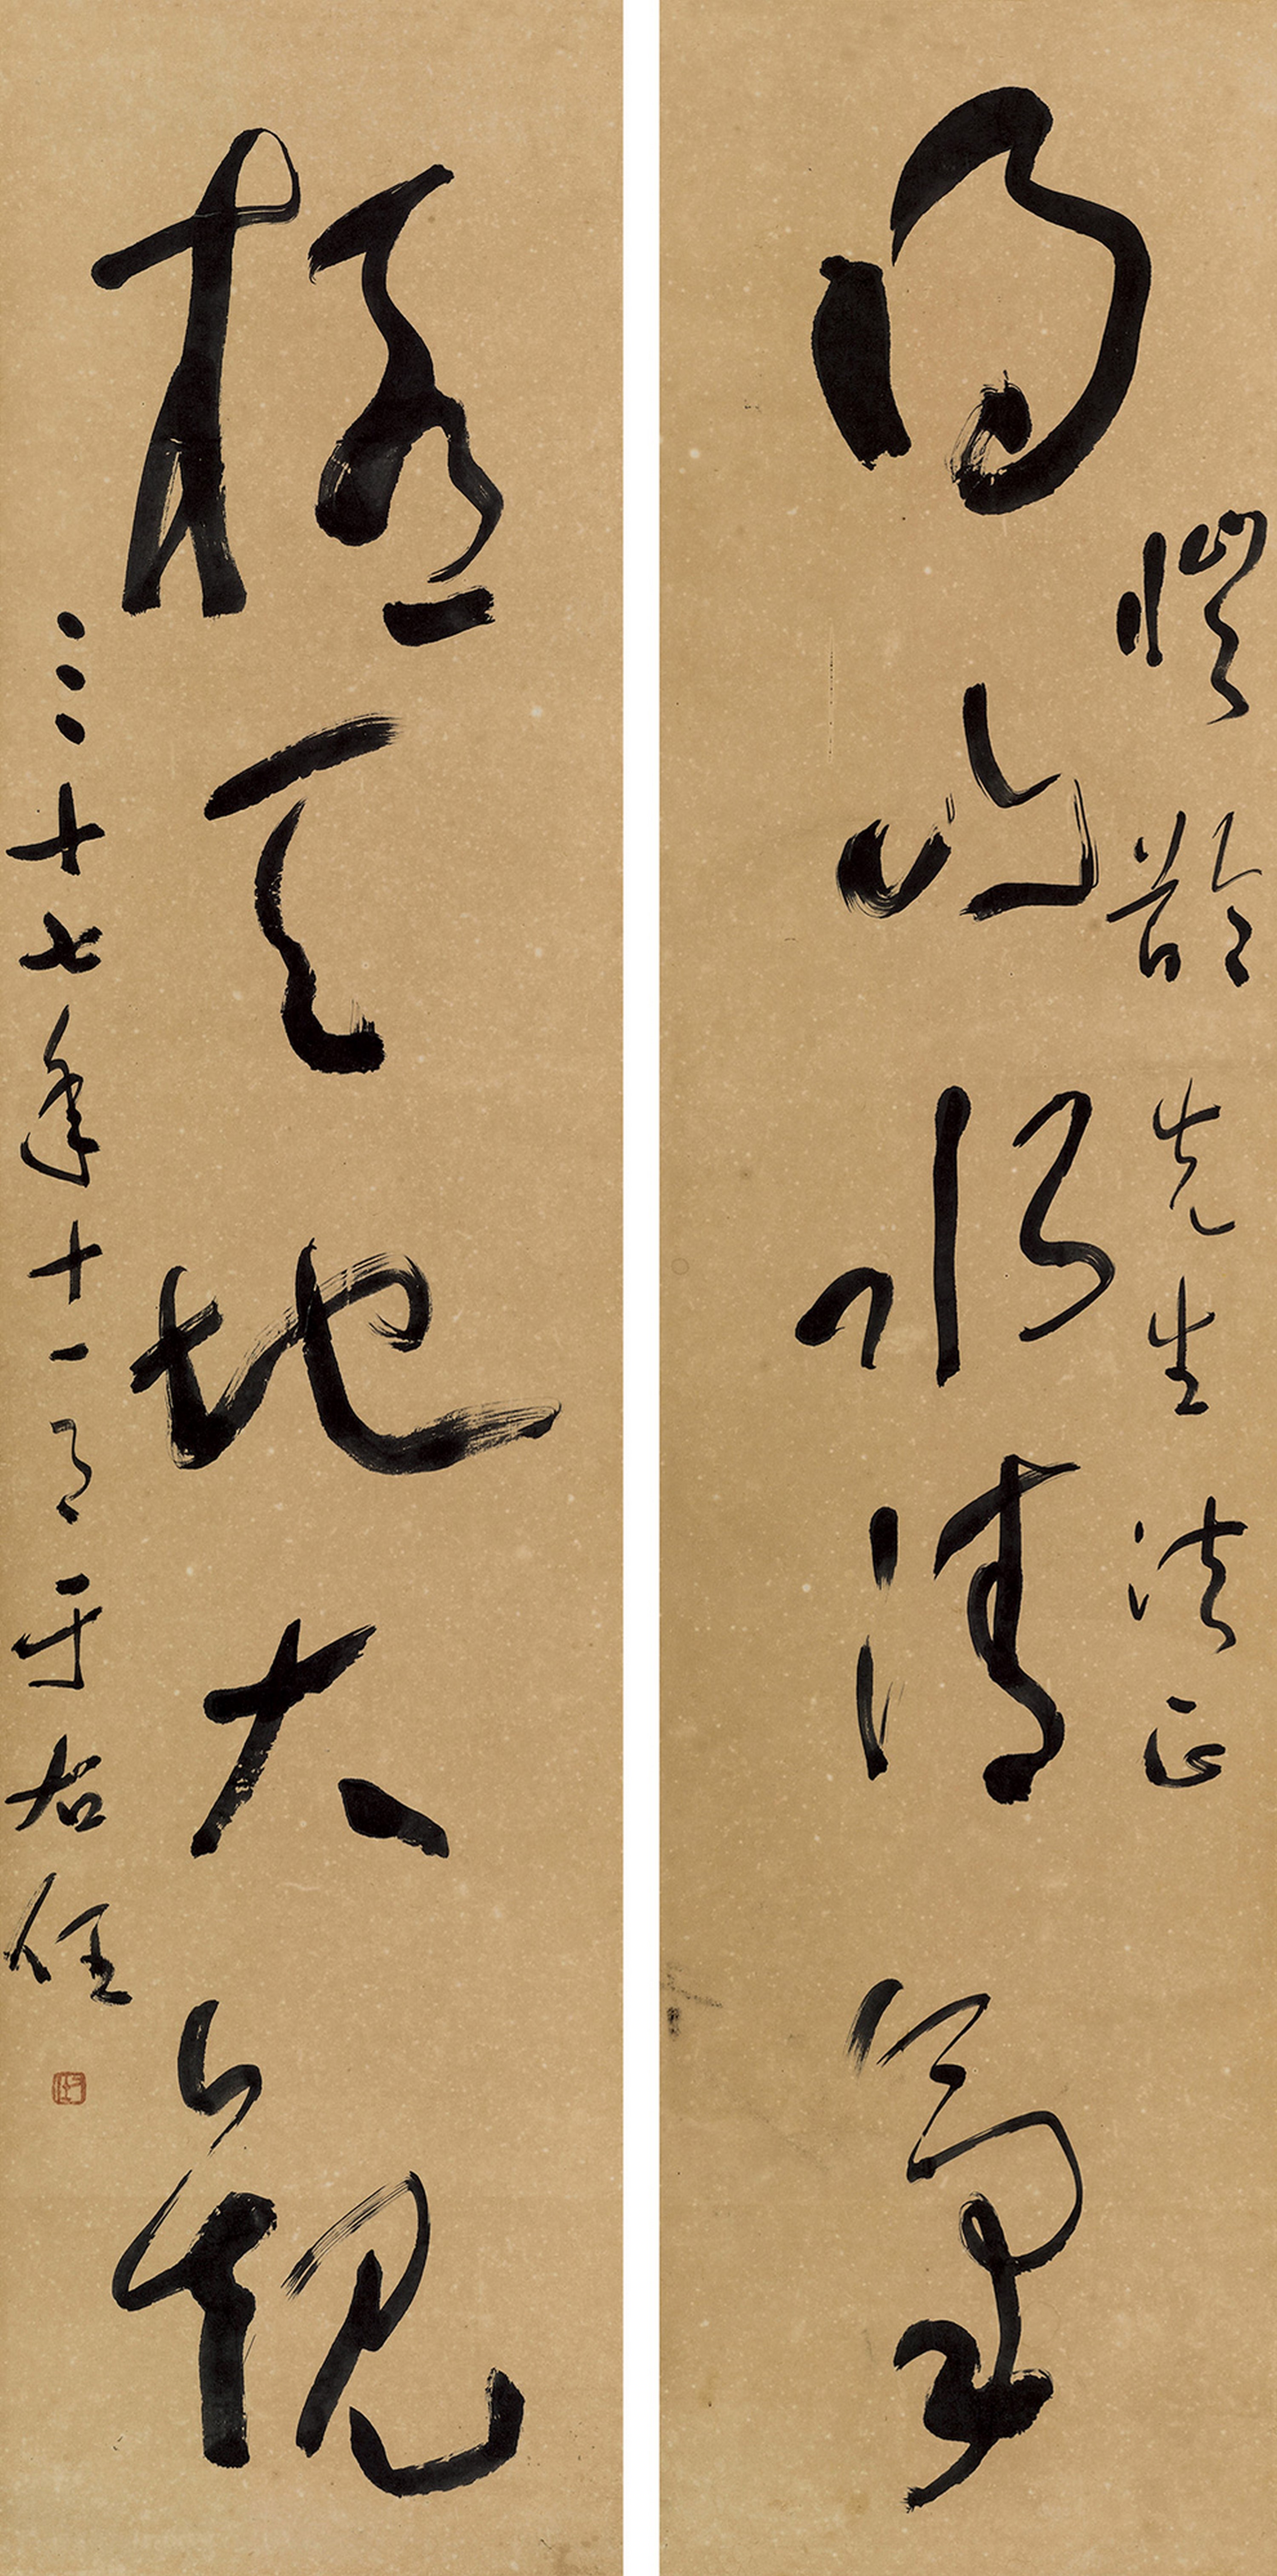 得山水清氣
愷齡先生法正
極天地大觀
三十七年十一月于右任